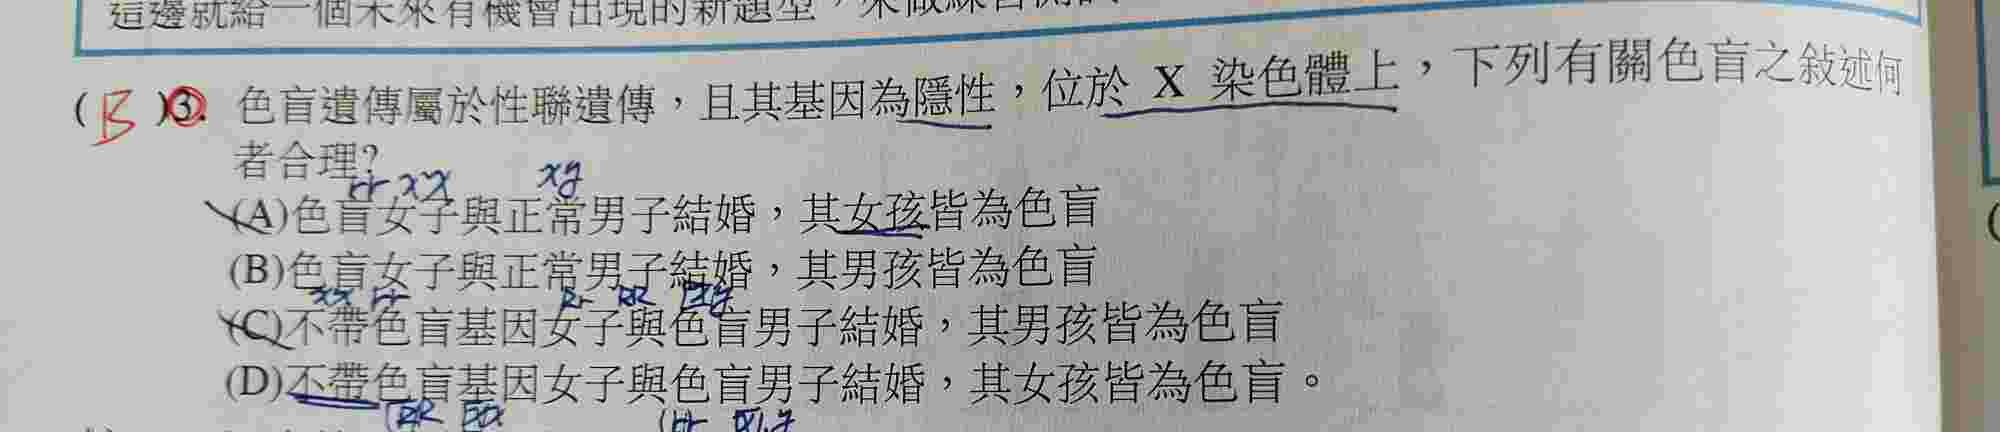 這邊就給一個未來有機會出現的新題型，來做練習
( B )3. 色盲遺傳屬於性聯遺傳，且其基因為隱性，位於 X 染色體上，下列有關色盲之敍述何
者合理?
rr xx xy
(A)色盲女子與正常男子結婚，其女孩皆為色盲
(B)色盲女子與正常男子結婚，其男孩皆為色盲
xx rr Rr RR xy
(C)不帶色盲基因女子與色盲男子結婚，其男孩皆為色盲
(D)不帶色盲基因女子與色盲男子結婚，其女孩皆為色盲。
(RR (rr